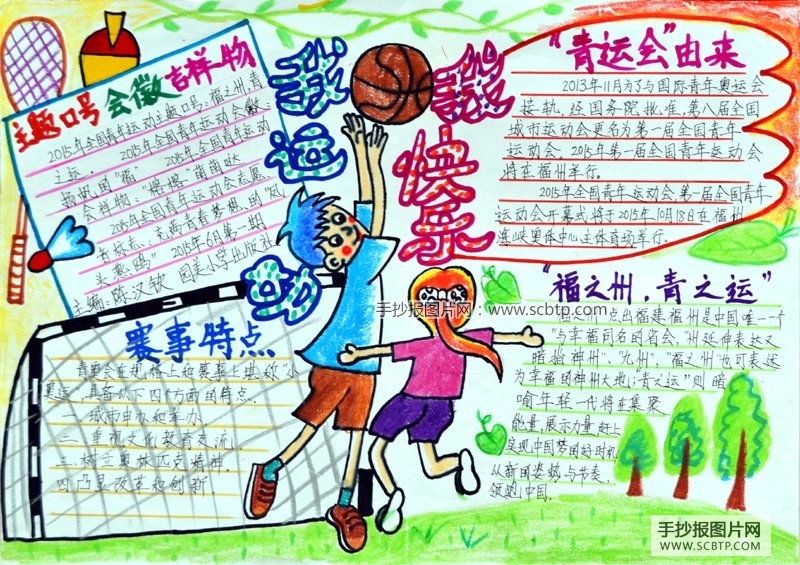 我运动
我快乐
主题口号 会徽 吉祥物
2015年全国青年运动主题口号:福之州,青
之运。 2015年全国青年运动会会徽:
2015年全国青年运动
会吉祥物:"榕榕"
2015年全国青年运动会志愿
者标志: 充满青春梦想的"凤
头燕鸥" 2015年6月第一期
主编:陈汉钦
"青运会"由来
2013年11月为了与国际青年奥运会
接轨,经国务院批准,第八届全国
城市运动会更名为第一届全国青年
运动会。2015年第一届全国青年运动会
将在福州举行。
2015年全国青年运动会,第一届全国青年
运动会开幕式将于2015年10月18日在福州
海峡奥体中心主体育场举行。
手抄报图片网:www.scbtp.com
赛事特点
青奥会在规格上和赛事上堪称"小
奥运",具有以下四个方面的特点。
一.城市申办和举办
二.重视文化教育交流。
三.树立奥林匹克精神。
四.凸显改革和创新。
"福之州,青之运"
福之州 点出福建福州是中国唯一个
"与幸福同名的省会,"州延伸表达又
暗指神州"、"九州","福之州"也可表达
为幸福的神州大地;"青之运"则暗
喻年轻一代将在集聚
能量,展示力量,赶上
实现中国梦的好时机,
从新的姿势与节奏,
领跑中国.
手抄报图片网
WWW.SCBTP.COM